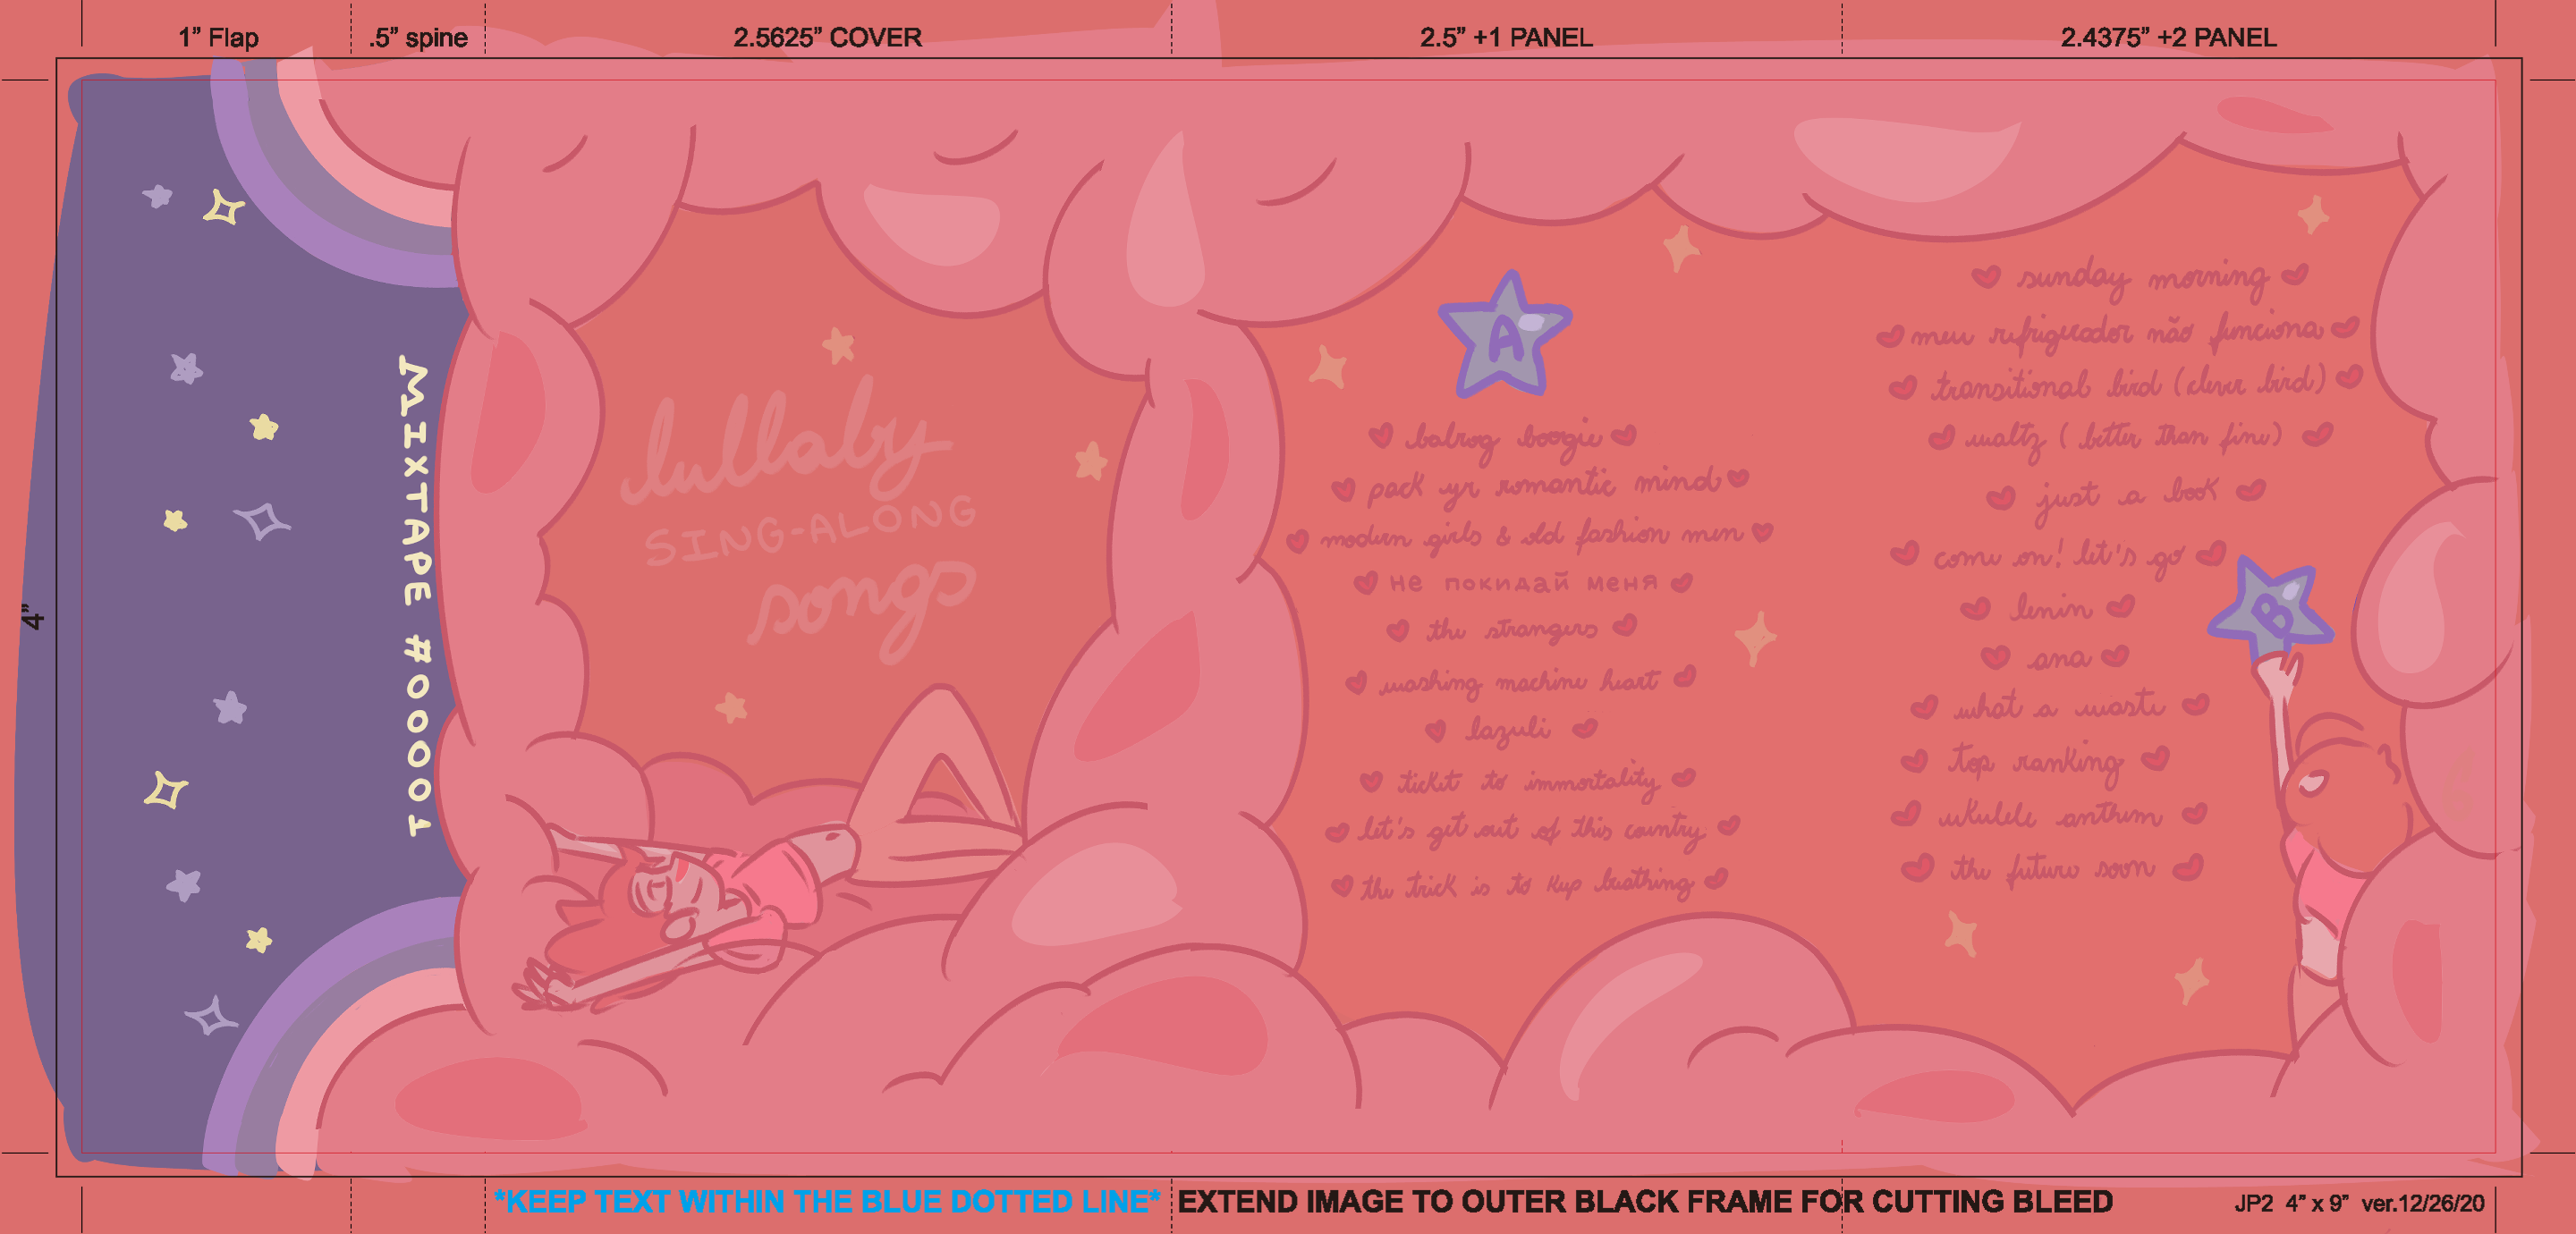 1” Flap
.5” spine
2.5625” COVER
2.5” +1 PANEL
2.4375” +2 PANEL
4”
MIXTAPE #00001
lullaby
SING-ALONG
songs
A
balrog boogie
pack yr romantic mind
modern girls & old fashion men
не покидай меня
the strangers
washing machine heart
lazuli
ticket to immortality
let's get out of this country
the trick is to keep breathing
sunday morning
meu refrigerador não funciona
transitional bird (clever bird)
waltz (better than fine)
just a book
come on! let's go
B
lenin
ana
what a waste
top ranking
ukulele anthem
the future soon
*KEEP TEXT WITHIN THE BLUE DOTTED LINE*
EXTEND IMAGE TO OUTER BLACK FRAME FOR CUTTING BLEED
JP2 4” x 9” ver.12/26/20